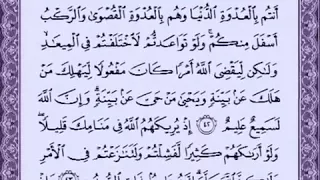 أَنتُم بِٱلۡعُدۡوَةِ ٱلدُّنۡيَا وَهُم بِٱلۡعُدۡوَةِ ٱلۡقُصۡوَىٰ وَٱلرَّكۡبُ
أَسۡفَلَ مِنكُمۡۚ وَلَوۡ تَوَاعَدتُّمۡ لَٱخۡتَلَفۡتُمۡ فِي ٱلۡمِيعَٰدِ
وَلَٰكِن لِّيَقۡضِيَ ٱللَّهُ أَمۡرٗا كَانَ مَفۡعُولٗا لِّيَهۡلِكَ مَنۡ
هَلَكَ عَنۢ بَيِّنَةٖ وَيَحۡيَىٰ مَنۡ حَيَّ عَنۢ بَيِّنَةٖۗ وَإِنَّ ٱللَّهَ
لَسَمِيعٌ عَلِيمٌ ٤٢ إِذۡ يُرِيكَهُمُ ٱللَّهُ فِي مَنَامِكَ قَلِيلٗاۖ
وَلَوۡ أَرَىٰكَهُمۡ كَثِيرٗا لَّفَشِلۡتُمۡ وَلَتَنَٰزَعۡتُمۡ فِي ٱلۡأَمۡرِ